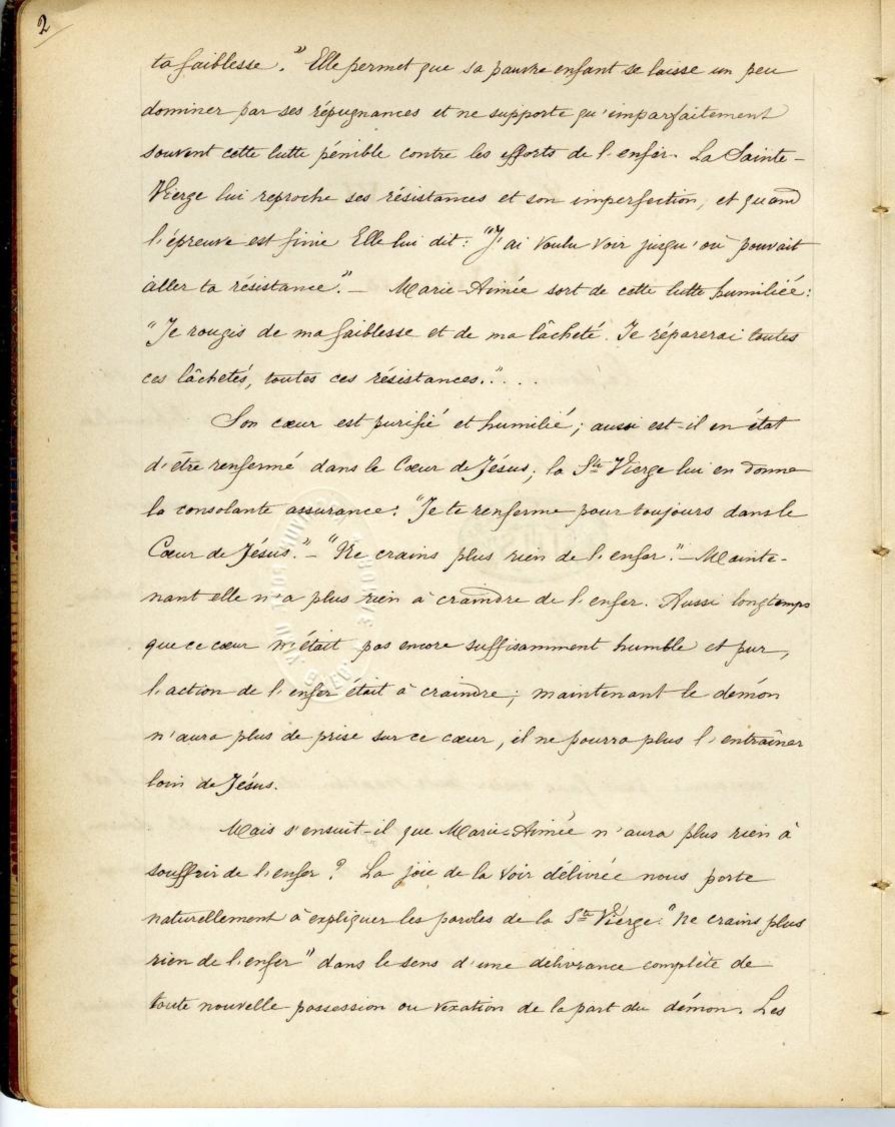 2
ta faiblesse." Elle permet que sa pauvre enfant se laisse un peu
dominer par ses répugnances et ne supporte qu'imparfaitement
souvent cette lutte pénible contre les efforts de l'enfer. La Sainte-
Vierge lui reproche ses résistances et son imperfection, et quand
l'épreuve est finie Elle lui dit: "J'ai voulu voir jusqu'où pouvait
aller ta résistance." — Marie-Aimée sort de cette lutte humiliée:
"Je rougis de ma faiblesse et de ma lâcheté. Je réparerai toutes
ces lâchetés, toutes ces résistances."...
Son cœur est purifié et humilié; aussi est-il en état
d'être renfermé dans le Cœur de Jésus; la Ste Vierge lui en donne
la consolante assurance: "Je te renferme pour toujours dans le
Cœur de Jésus." — "Ne crains plus rien de l'enfer." — Mainte-
nant elle n'a plus rien à craindre de l'enfer. Aussi longtemps
que ce cœur n'était pas encore suffisamment humble et pur,
l'action de l'enfer était à craindre; maintenant le démon
n'aura plus de prise sur ce cœur, il ne pourra plus l'entraîner
loin de Jésus.
Mais s'ensuit-il que Marie-Aimée n'aura plus rien à
souffrir de l'enfer? La joie de la voir délivrée nous porte
naturellement à expliquer les paroles de la Ste Vierge: "Ne crains plus
rien de l'enfer" dans le sens d'une délivrance complète de
toute nouvelle possession ou vexation de la part du démon. Les